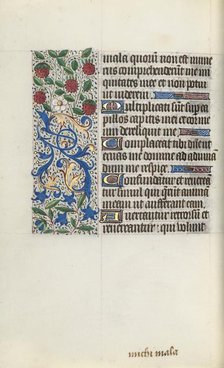 mala quorum non est nume
us comprehenderunt me ini
quitates mee et non potui
ut viderem
Multiplicati sunt super ca
pillos capitis mei et cor me
um dereliquit me
Complaceat tibi domine ut
eruas me domine ad adiuuan
dum me respice
Confundantur et reuerea
tur simul qui querunt anima
meam ut auferant eam
Auertantur retrorsum et
reuereantur qui volunt
michi mala